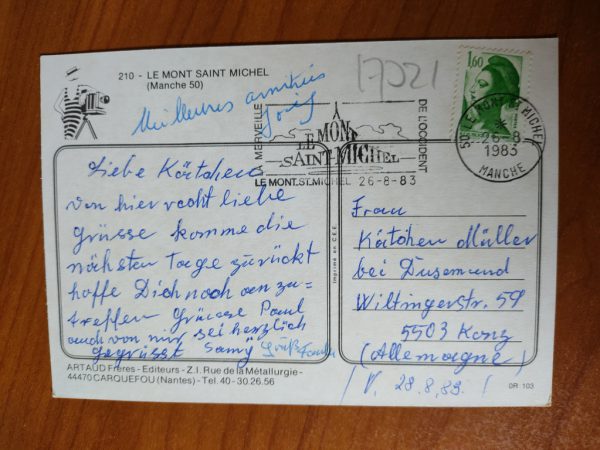 210 - LE MONT SAINT MICHEL
(Manche 50)
Meilleures amitiés
17021
1,60
LA MERVEILLE
LE MONT
SAINT-MICHEL
DE L'OCCIDENT
LE MONT.ST.MICHEL 26-8-83
50 LE MONT ST MICHEL
26-8
1983
MANCHE
Liebe Kätchen
Von hier recht liebe
Grüsse komme die
nächsten Tage zurückt
hoffe Dich noch an zu=
treffen Grüsse Paul
auch von mir sei herzlich
gegrüsst Samy
Imprimé en C.E.E.
Frau
Kätchen Müller
bei Dusemund
Wiltingerstr. 59
5503 Konz
(Allemagne)
28.8.83. !
ARTAUD Frères - Editeurs - Z.I. Rue de la Métallurgie -
44470 CARQUEFOU (Nantes) - Tel. 40 - 30.26.56
OR 103